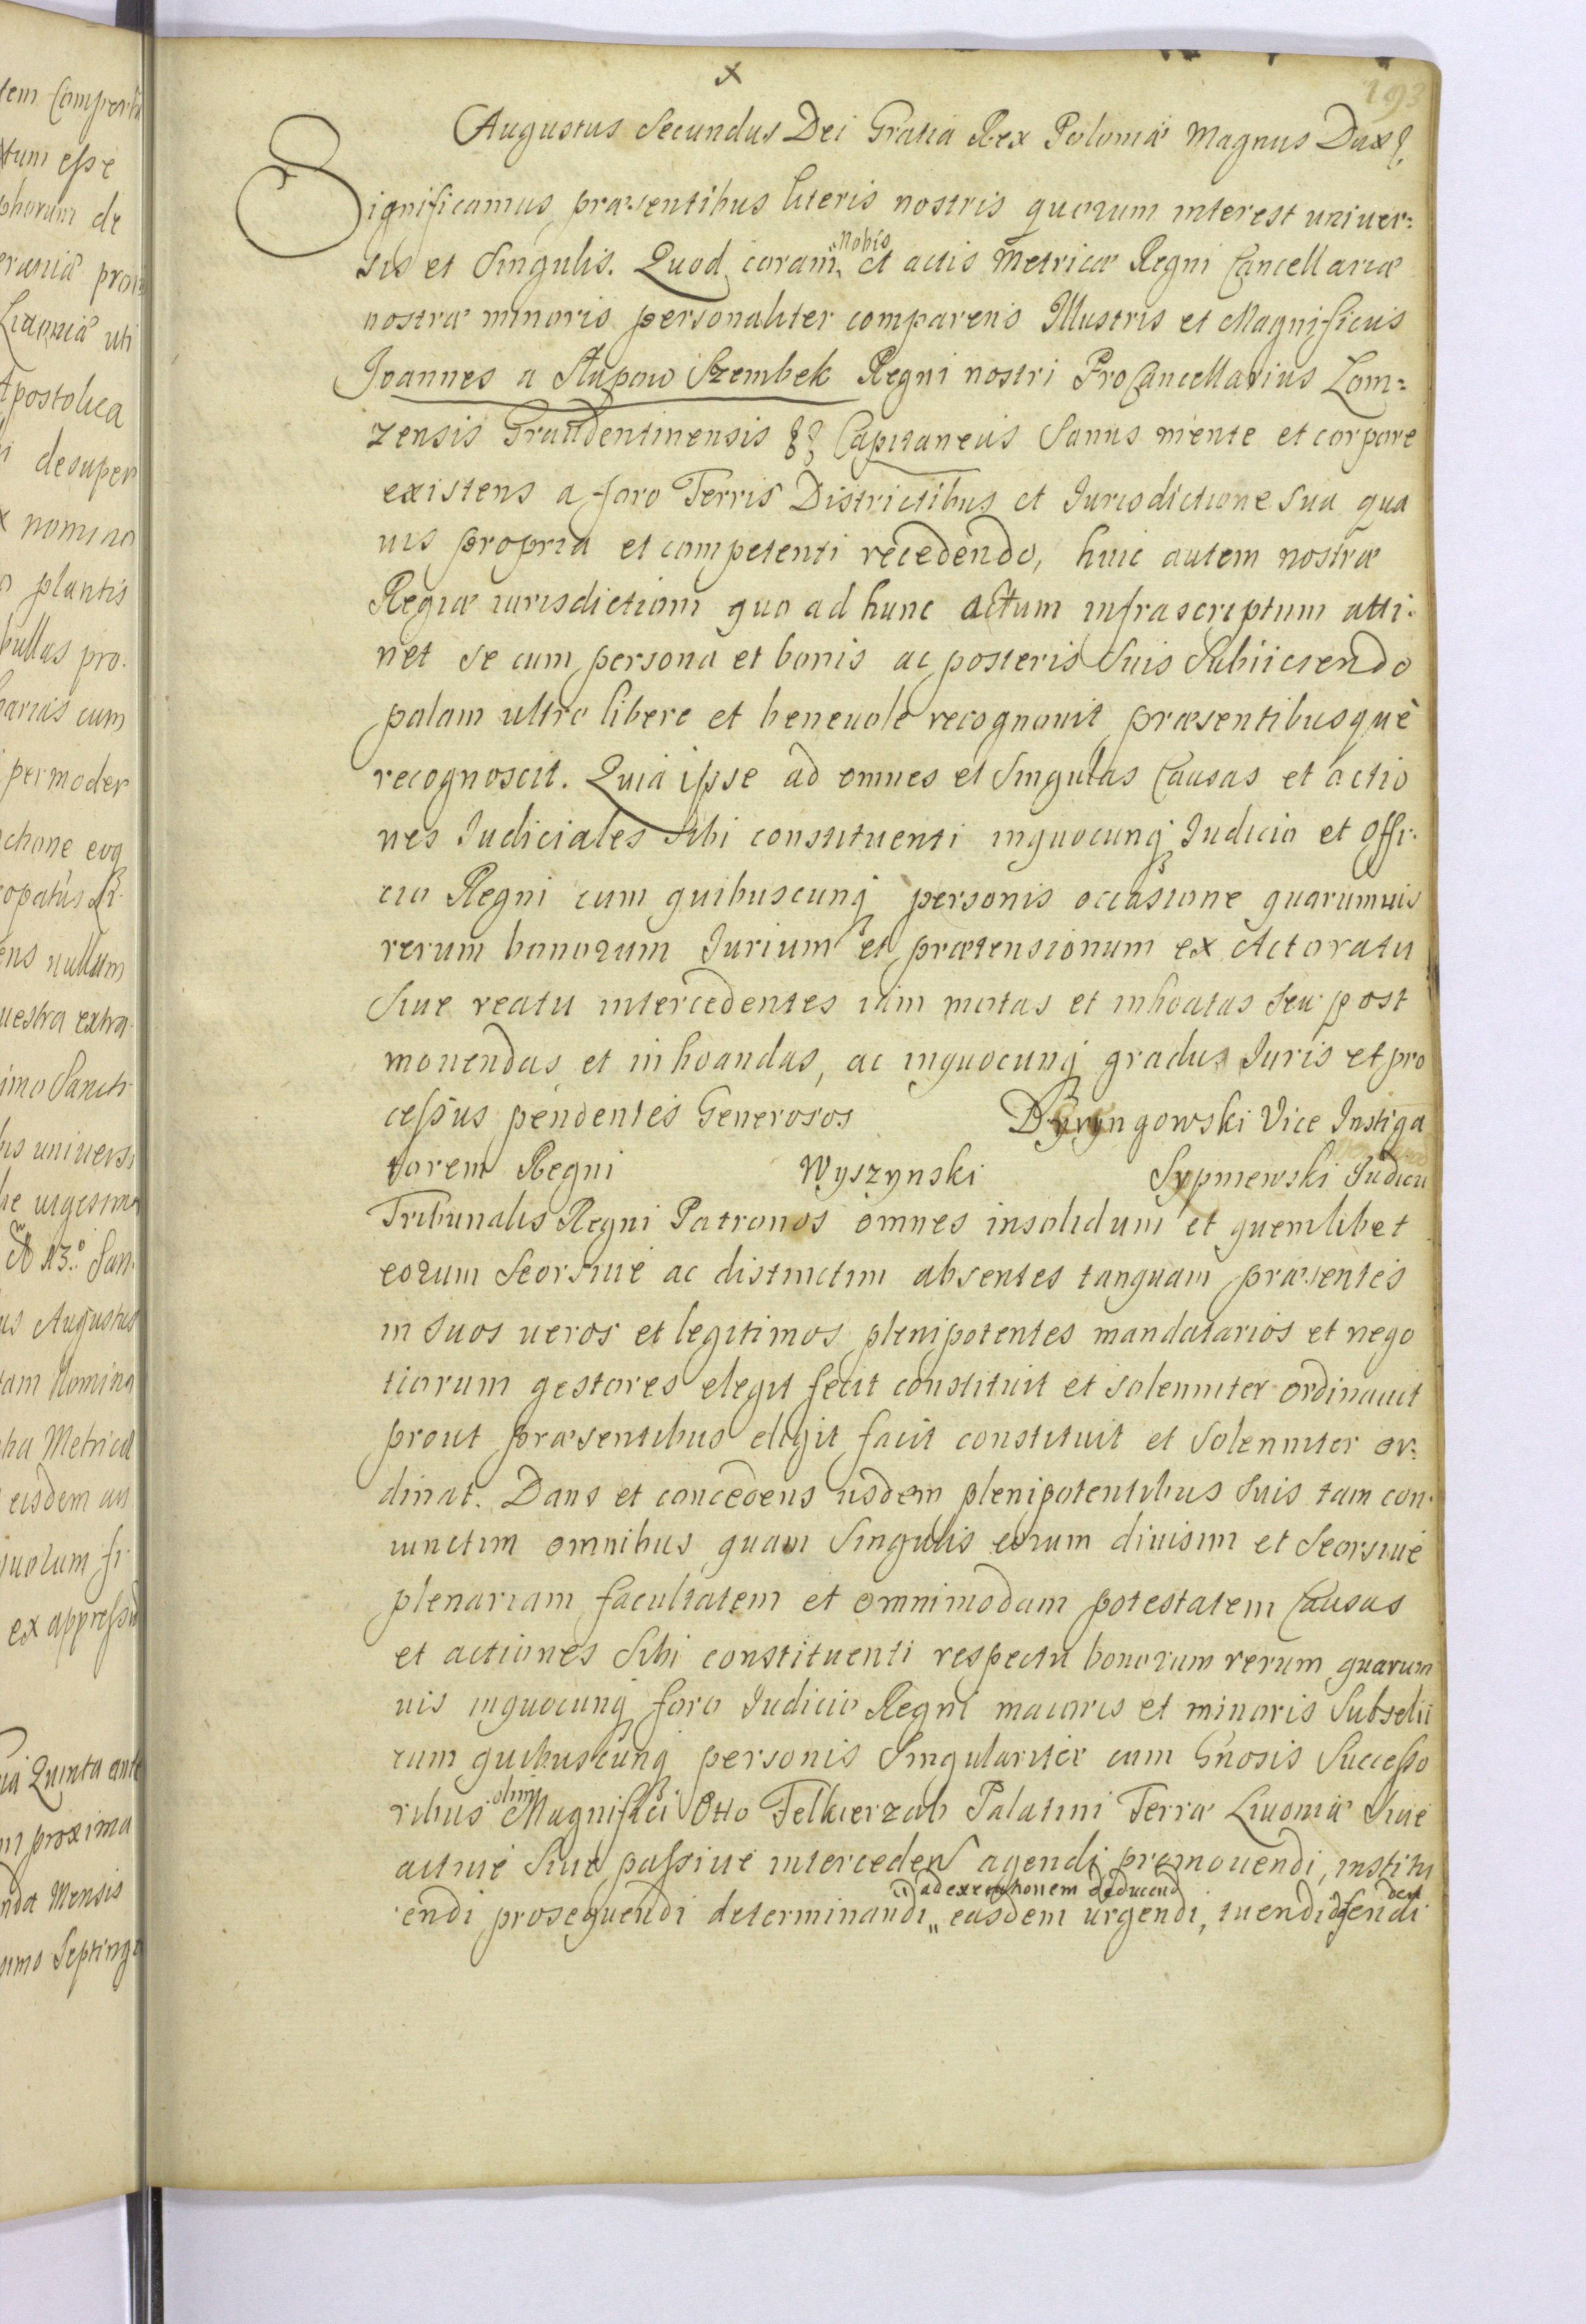 193
x
Augustus Secundus Dei Gratia Rex Poloniæ Magnus Dux &
Significamus præsentibus literis nostris quorum interest univer=
sis et Singulis. Quod coram Nobis et actis Metricæ Regni Cancellariæ
nostræ minoris personaliter comparens Illustris et Magnificus
Joannes a Słupow Szembek Regni nostri ProCancellarius Lom=
zensis Graudentinensis && Capitaneus Sanus mente et corpore
existens a foro Terris Districtibus et Jurisdictione sua qua
uis propria et competenti recedendo, huic autem nostræ
Regiæ iurisdictioni quo ad hunc actum infrascriptum atti=
net se cum persona et bonis ac posteris Suis Subiiciendo
palam ultro libere et beneuole recognouit præsentibusquè
recognoscit. Quia ipse ad omnes et Singulas Causas et actio
nes Judiciales Sibi constituenti inquocunq Judicio et Offi=
cio Regni cum quibuscunq personis occasione quarumuis
rerum bonorum Jurium et prætensionum ex Actoratu
Siue reatu intercedentes iam motas et inhoatas seu post
mouendas et inhoandas, ac inquocunq gradus Juris et pro
cessus pendentes Generosos Dyryngowski Vice Instiga
torem Regni Wyszynski Sypniewski Judicii
Tribunalis Regni Patronos omnes insolidum et quemlibet
eorum Seorsiue ac distinctim absentes tanquam præsentes
in Suos ueros et legitimos plenipotentes mandatarios et nego
tiorum gestores elegit fecit constituit et solenniter ordinauit
prout præsentibus eligit facit constituit et Solenniter or=
dinat. Dans et concedens iisdem plenipotentibus Suis tam con=
iunctim omnibus quam Singulis eorum diuisim et Seorsiue
plenariam facultatem et omnimodam potestatem Causas
et actiones Sibi constituenti respectu bonorum rerum quarum
uis inquocunq foro Judicio Regni maioris et minoris Subselii
cum quibuscunq personis Singulariter cum Gnosis Successo
ribus olim Magnifici Otto Felkierzab Palatini Terræ Liuoniæ Siue
actiue Siue passiue interceden agendi promouendi, institu
endi prosequendi determinandi ad exemtionem deducend easdem urgendi, tuendi defendi